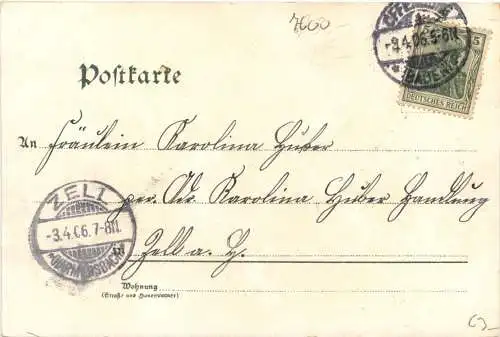 7660
OFFENBURG
-3.4.06.5-6N.
(BADEN)
5
DEUTSCHES REICH
Postkarte
An Fräulein Karolina Huber
per. Adr. Karolina Huber Handlung
ZELL
-3.4.06.7-8N.
*(HARMERSBACH)*
in Zell a. H.
Wohnung
(Straße und Hausnummer)